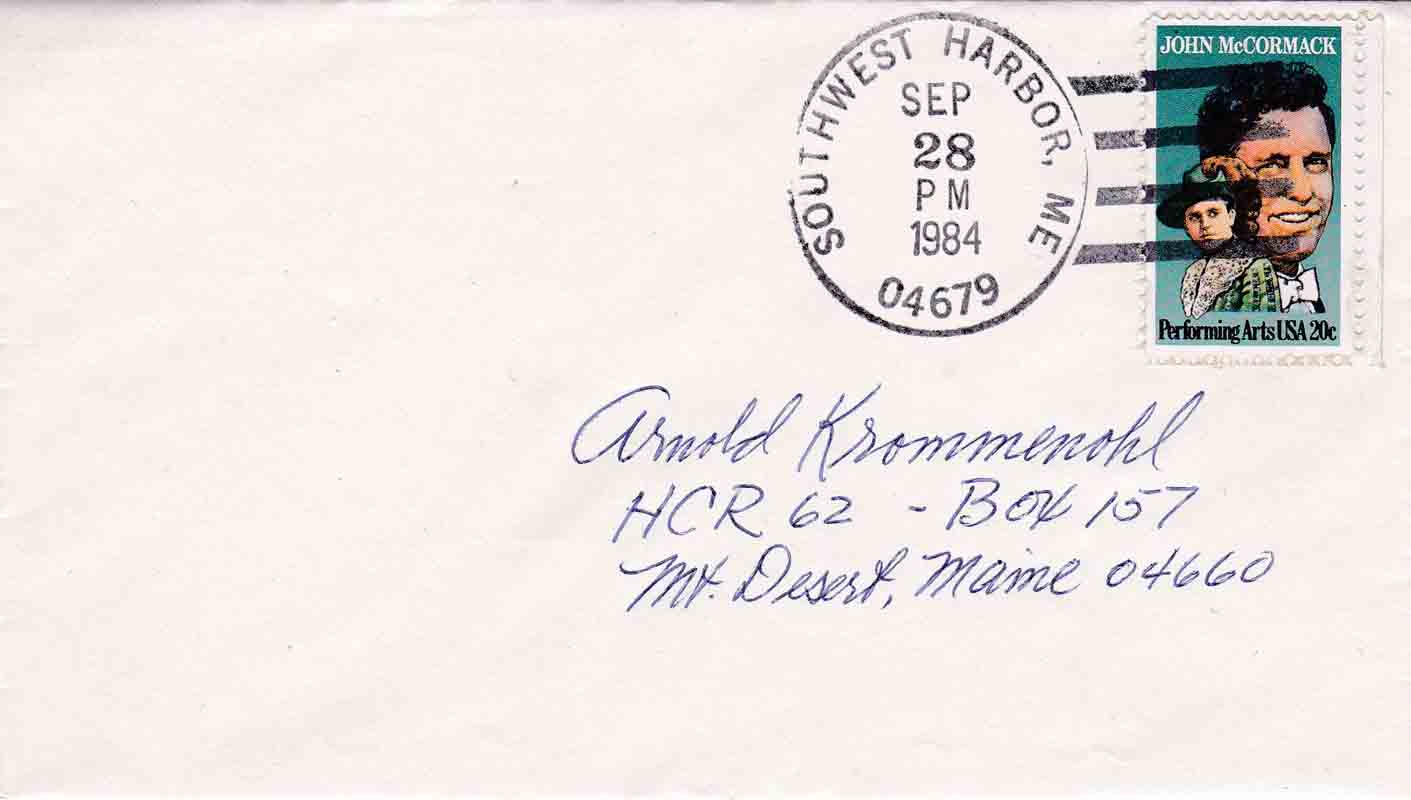 SOUTHWEST HARBOR, ME
SEP
28
PM
1984
04679
JOHN McCORMACK
Performing Arts USA 20c
Arnold Krommenohl
HCR 62 - Box 157
Mt. Desert, Maine 04660